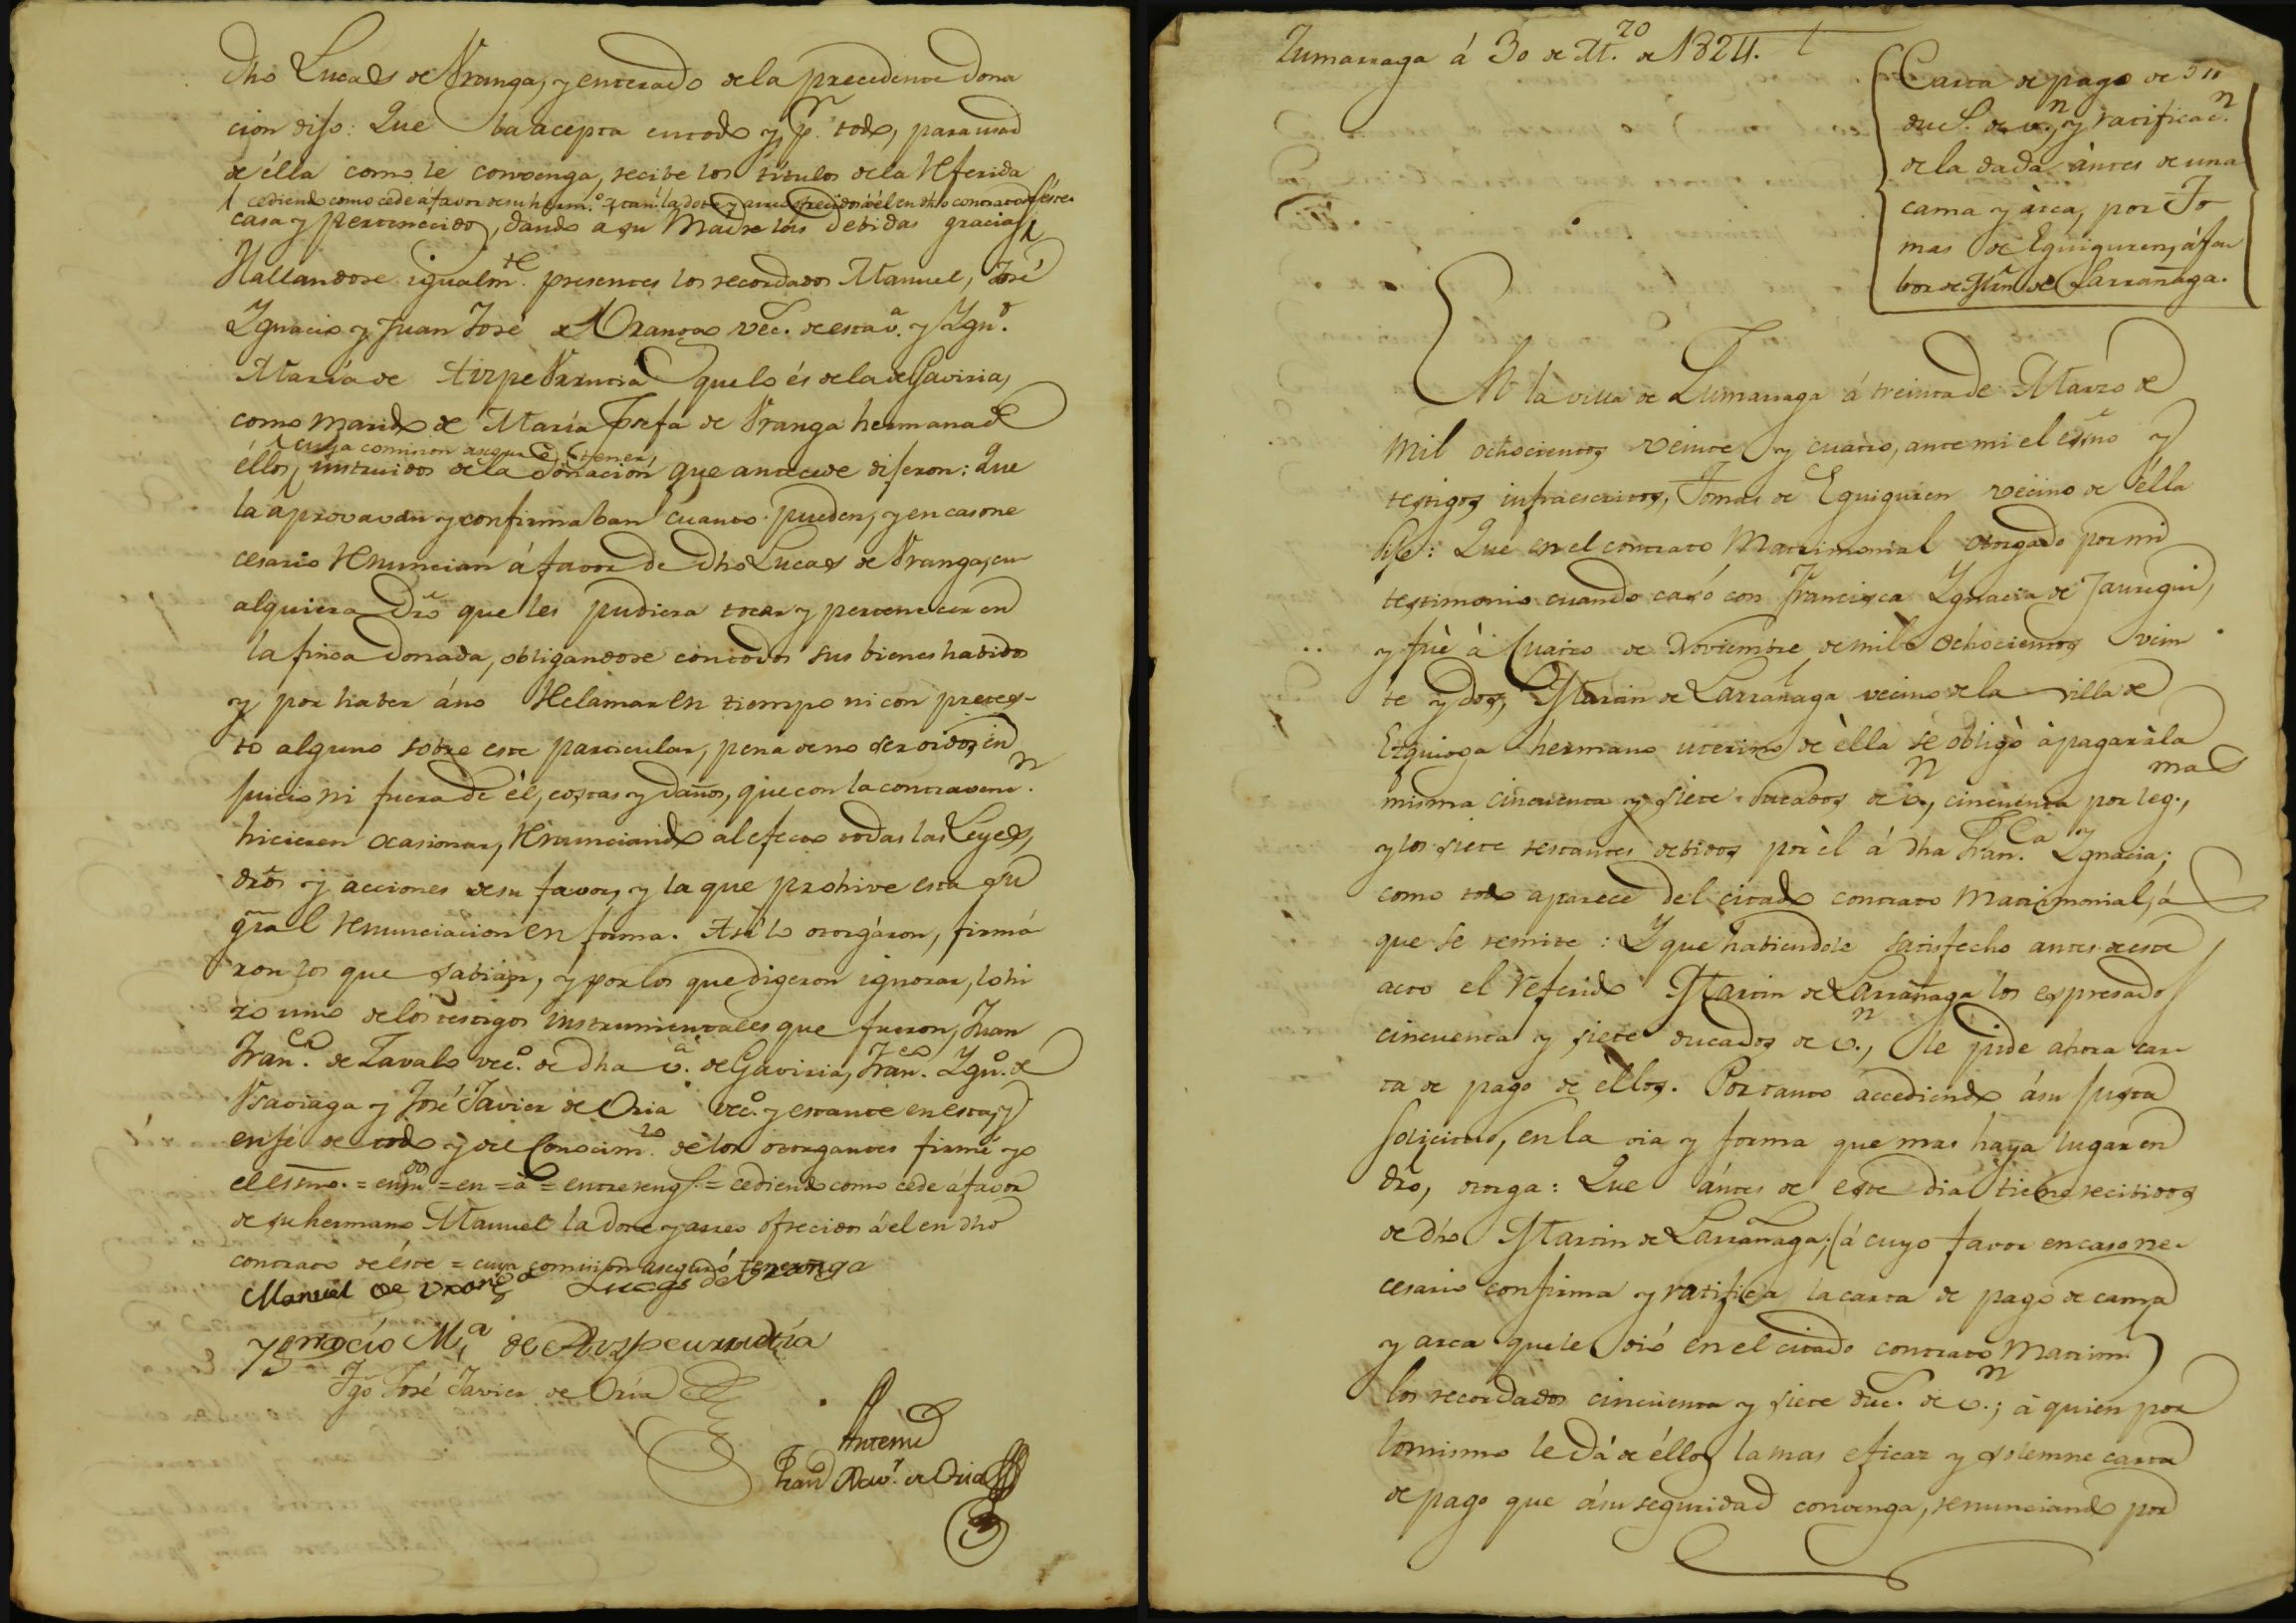 dho Lucas de Vranga, y enterado de la precedente dona
cion dijo: Que la acepta en todo y p.r todo, para usar
de élla como le convenga, recibe los titulos de la referida
cediendo como cede á favor de su herm.o Man.l la dote y arreo ofrecidos á él en dho contrato de éste
casa y pertenecido, dando a su Madre las debidas gracias
Hallandose igualm.te presentes los recordados Manuel, José
Ygnacio y Juan José de Vranga vec.s de esta v.a y Ygn.o
María de AizpeVrrutia que lo és de la de Gaviria,
como marido de María Josefa de Vranga hermana de
cuya comision aseguró tener,
éllos, instruidos de la donación que antecede dijeron: Que
la áprovavan y confirmaban cuanto pueden, y en caso ne
cesario renuncian á favor de dho Lucas de Vranga, cu
alquiera dro que les pudiera tocar y pertenecer en
la finca donada, obligandose con todos sus bienes habidos
y por haber áno reclamar en tiempo ni con pretes-
to alguno sobre este particular, pena de no ser oidos en
juicio ni fuera de él, costas y daños, que con la contraven.n
hicieren ocasionar, renunciando al efecto todas las Leyes,
dros y acciones de su favor, y la que prohive esta su
gral renunciacion en forma. Asi lo otorgáron, firmá
ron los que sabian, y por los que digeron ignorar, lo hi
zo uno de los testigos instrumentales que fueron, Juan
Fran.co de Zavalo vec.o de dha v.a de Gaviria, Fran.co Ygn.o de
Vsaviaga y José Javier de Oria vec.o y estante en esta, y
en fé de todo y del Conocim.to de los otorgantes firmé yo
el esno. = en = á = entrereng.s = cediendo como cede a favor
de su hermano Manuel la dote y arreo ofrecidos á él en dho
contrato de éste = cuya comision aseguró tener
Manuel de vranga Lucas de Vranga
Ygnacio M.a de Aizpeurrutia
Tgo José Javier de Oria
Antemi
Fran.co Xav.r de Oria
Zumarraga á 30 de M.zo de 1824.
Carta de pago de 57
duc.s de v.n y ratificac.n
de la dada ántes de una
cama y árca, por To
mas de Eguiguren, á fa
bor de Mrn de Larrañaga.
En la villa de Zumarraga á treinta de Marzo de
mil ochocientos veinte y cuatro, ante mi el esno y
testigos infraescritos, Tomas de Eguiguren vecino de élla
dijo: Que en el contrato Matrimonial otorgado por mi
testimonio cuando casó con Francisca Ygnacia de Jauregui,
y fuè à Cuatro de Noviembre de mil ochocientos vein
te y dos, Martin de Larrañaga vecino de la villa de
Ezquioga hermano uterino de èlla se obligò à pagar à la
misma cincuenta y siete ducados de v.n, cincuenta por leg.mas,
y los siete restantes debidos por èl á dha Fran.ca Ygnacia;
como todo aparece del citado contrato Matrimonial, á
que se remite: Y que habiendole satisfecho antes de este
acto el referido Martin de Larrañaga los espresados
cincuenta y siete ducados de v.n, le pide ahora car
ta de pago de èllos. Por tanto accediendo ásu justa
solicitud, en la via y forma que mas haya lugar en
dro, otorga: Que ántes de este dia tiene recibidos
de dho Martin de Larrañaga; (á cuyo favor en caso ne
cesario confirma y ratifica la carta de pago de cama
y arca que le dió en el citado contrato Matrim.l)
los recordados cincuenta y siete duc.s de v.n; à quien por
lo mismo le dá de éllos la mas eficaz y solemne carta
de pago que ásu seguridad convenga, renunciando por